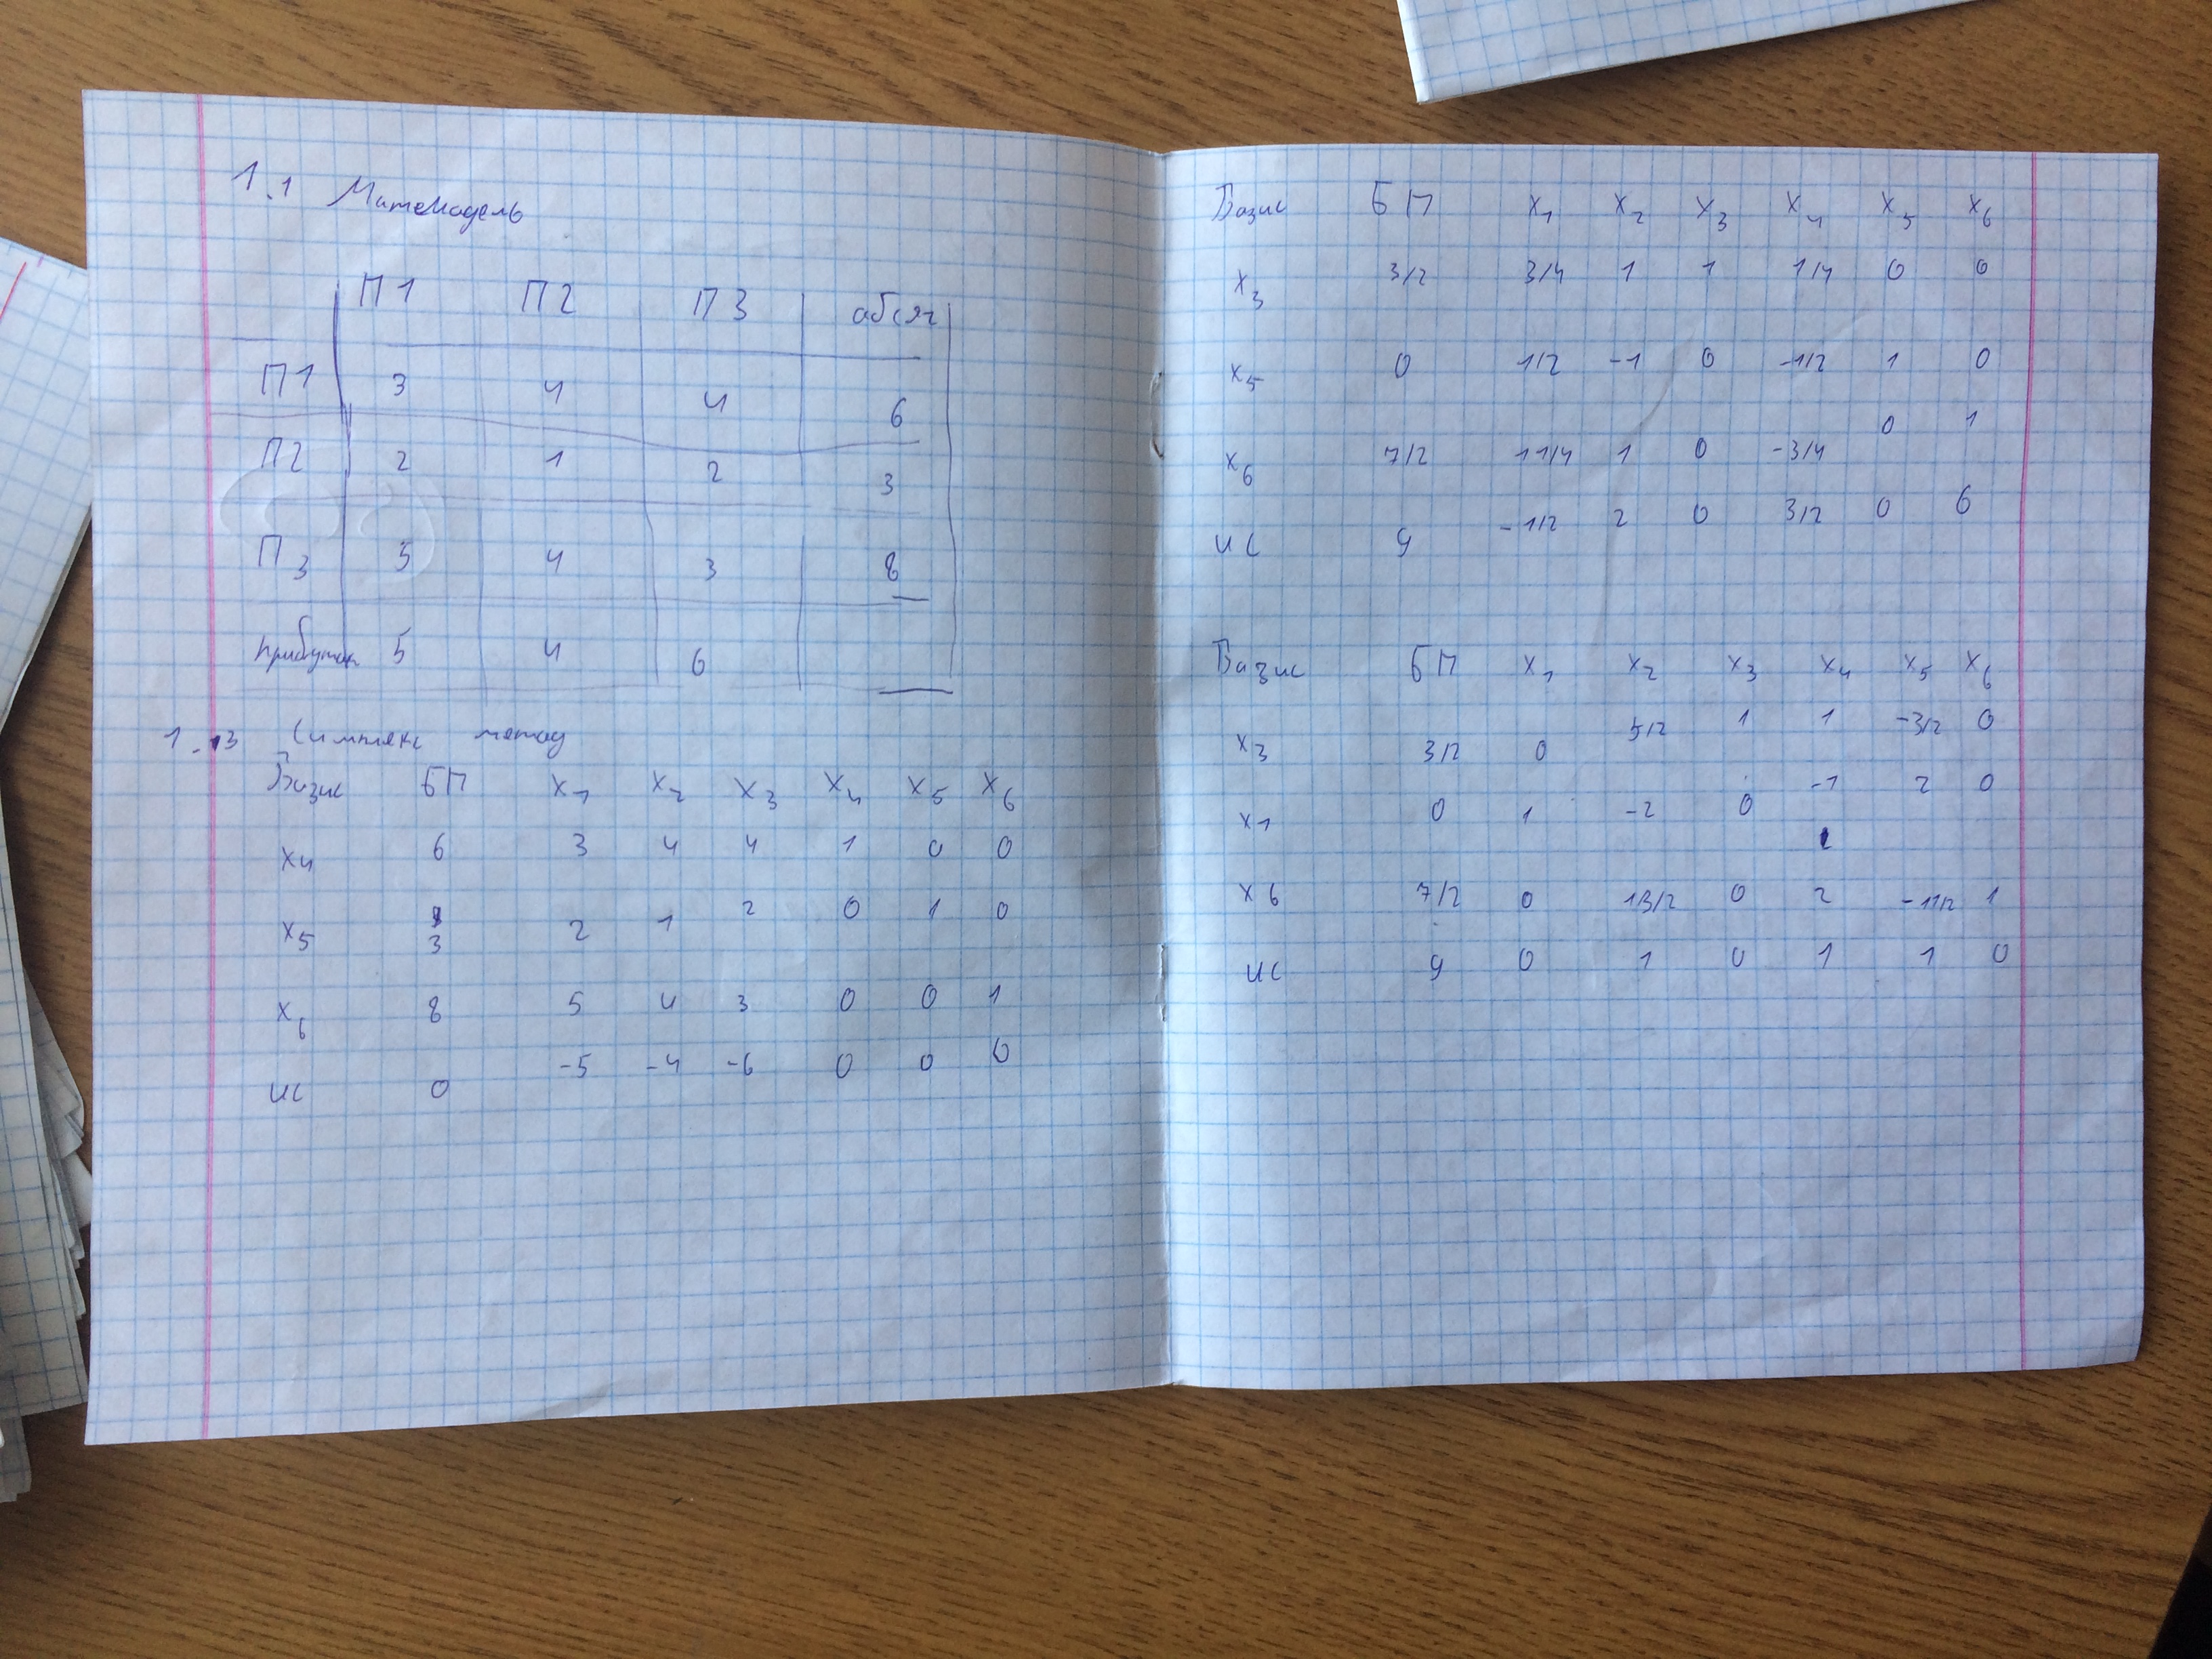 1.1 Матемодель
П1 П2 П3 обсяг
П1 3 4 4 6
П2 2 1 2 3
П3 5 4 3 8
прибуток 5 4 6
1.3 Симплекс метод
Базис БП x1 x2 x3 x4 x5 x6
x4 6 3 4 4 1 0 0
x5 3 2 1 2 0 1 0
x6 8 5 4 3 0 0 1
ИС 0 -5 -4 -6 0 0 0
Базис БП x1 x2 x3 x4 x5 x6
x3 3/2 3/4 1 1 1/4 0 0
x5 0 1/2 -1 0 -1/2 1 0
x6 7/2 11/4 1 0 -3/4 0 1
ИС 9 -1/2 2 0 3/2 0 6
Базис БП x1 x2 x3 x4 x5 x6
x3 3/2 0 5/2 1 1 -3/2 0
x1 0 1 -2 0 -1 2 0
x6 7/2 0 13/2 0 2 -11/2 1
ИС 9 0 1 0 1 1 0